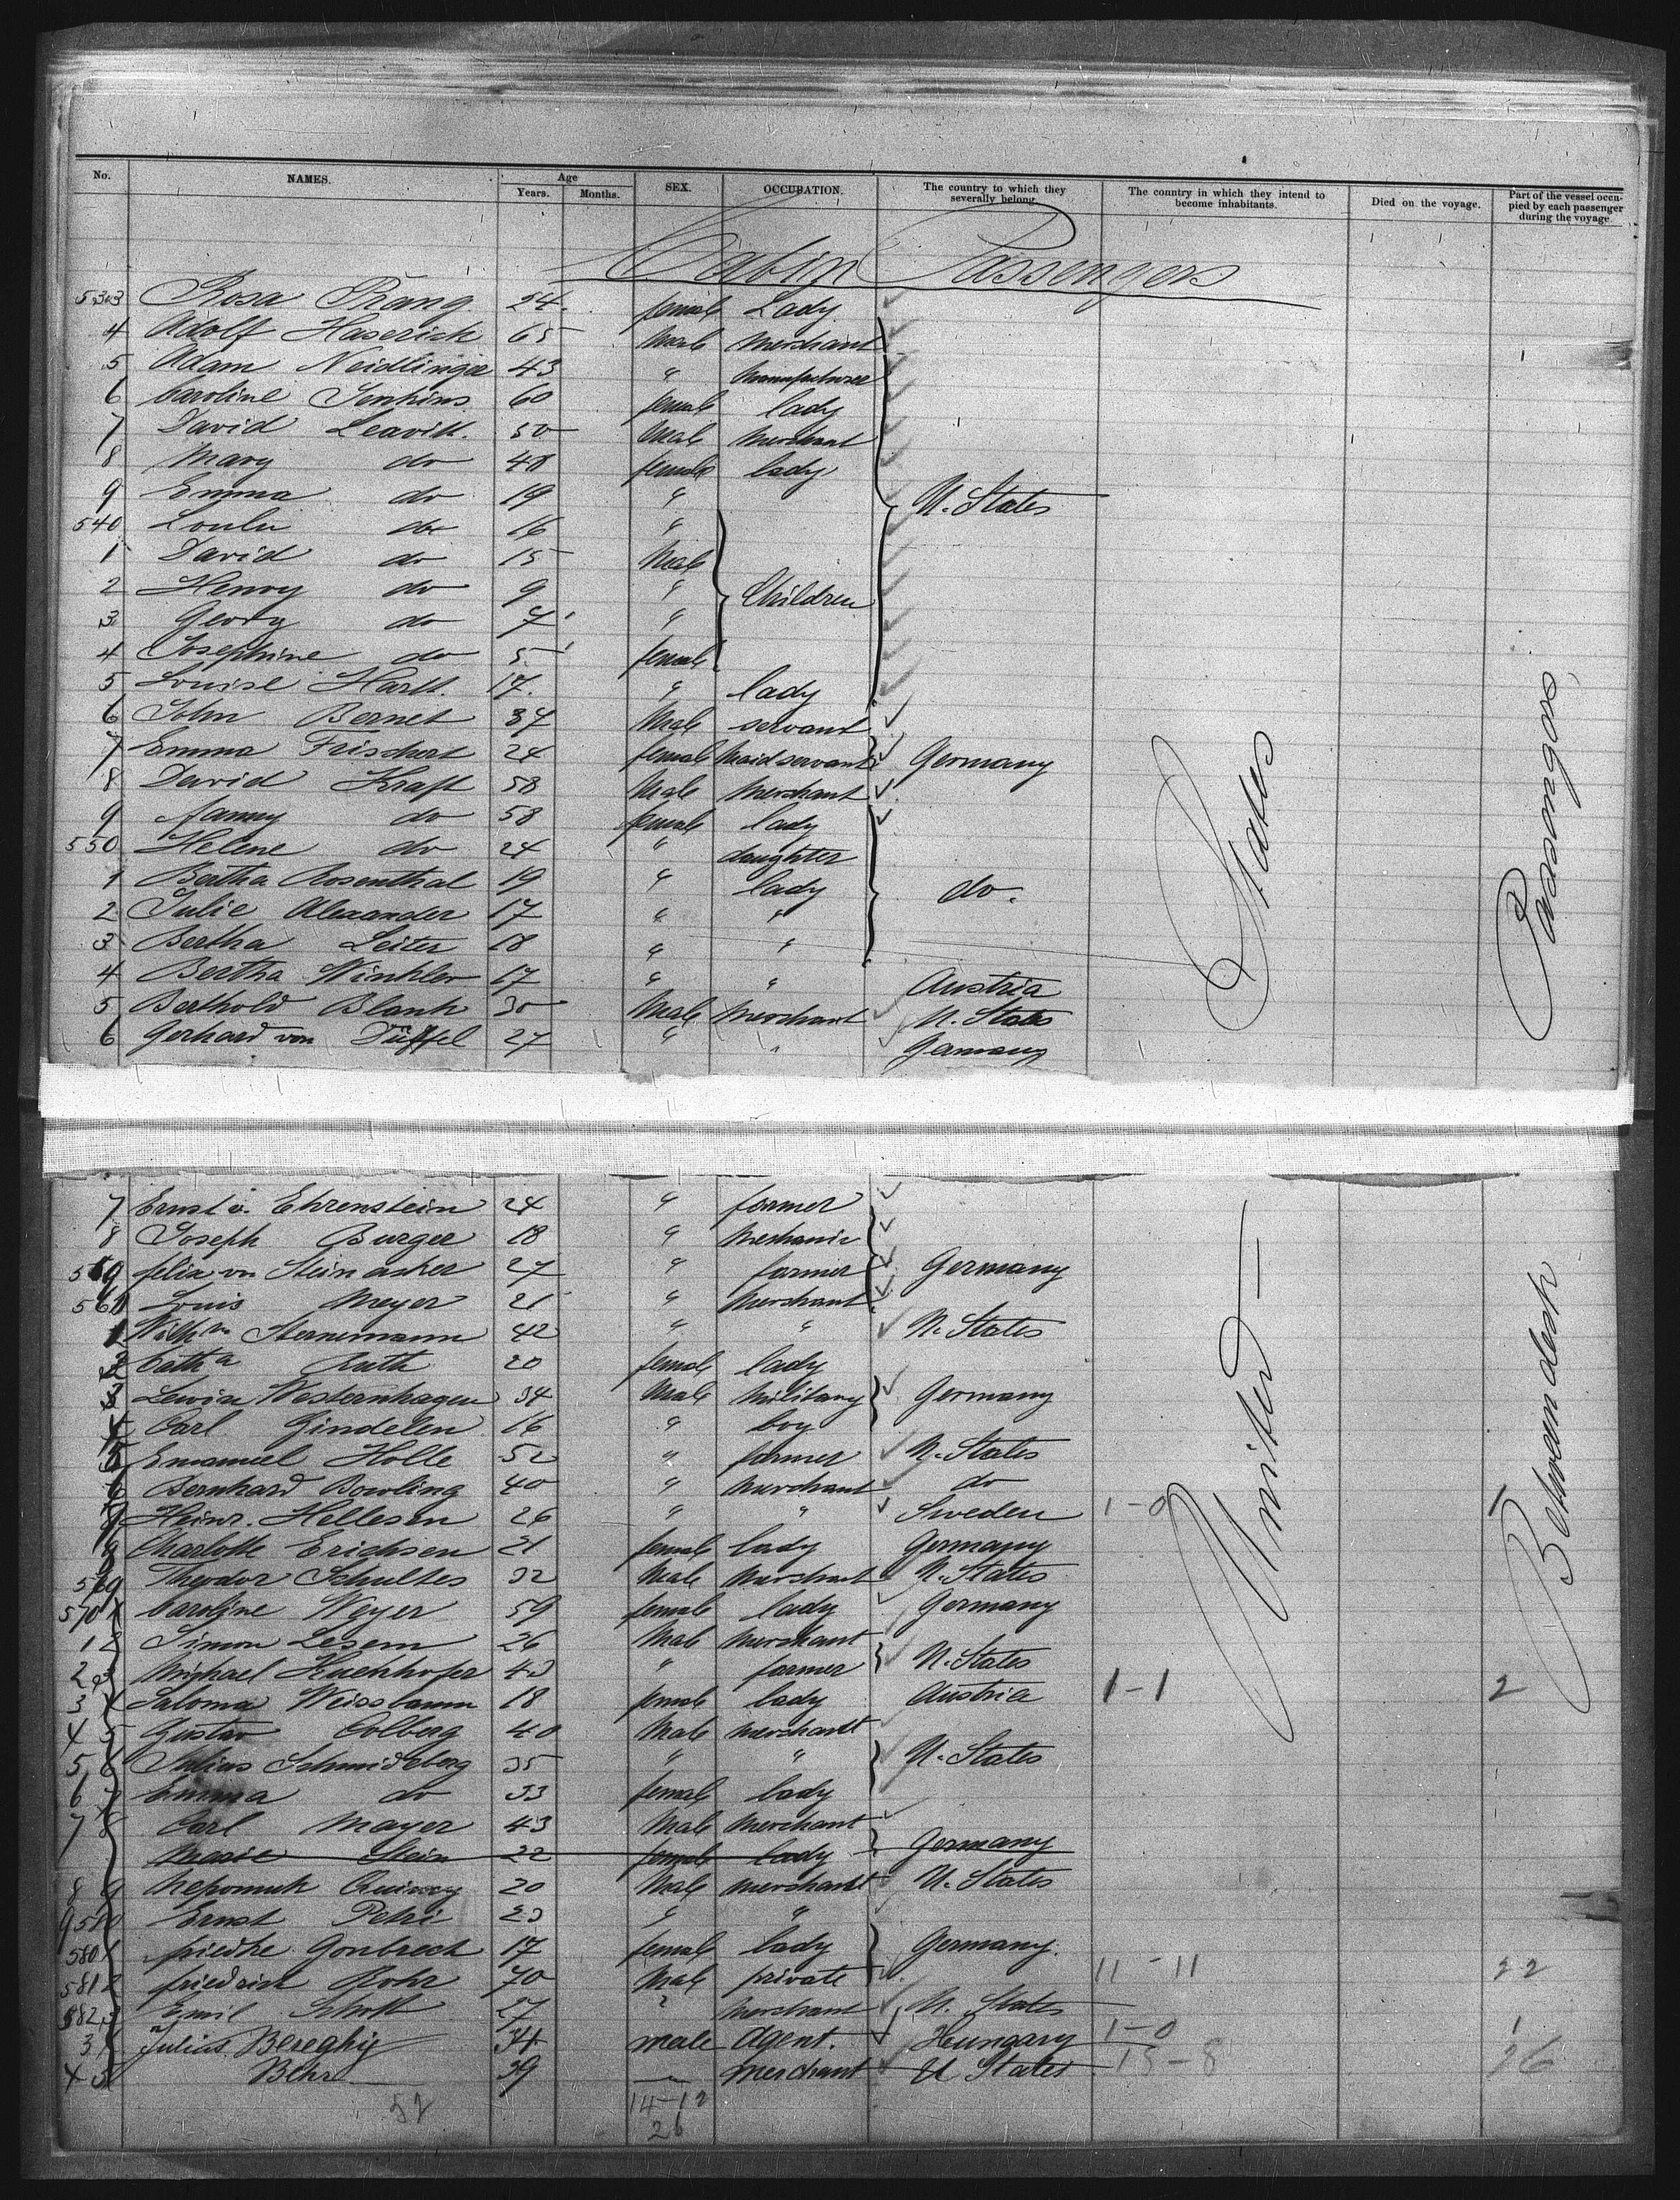 No. NAMES. Age Years. Months. SEX. OCCUPATION. The country to which they severally belong. The country in which they intend to become inhabitants. Died on the voyage. Part of the vessel occupied by each passenger during the voyage.
Cabin Passengers
Rosa Prang 54 female Lady
4 Adolf Haserick 65 Male Merchant
5 Adam Neidlinger 43 " Manufacturer
6 Caroline Jenkins 60 female lady
7 David Leavitt. 50 Male Merchant
8 Mary do 48 female lady
9 Emma do 19 " U. States
540 Loulu do 16 "
1 David do 15 Male
2 Henry do 9 " Children
3 Georg do 7 "
4 Josephine do 5 female
5 Louise Hartt. 17. " lady
6 John Bernet 37 Male servant
7 Emma Frischert 24 female Maidservant Germany
8 David Kraft 58 Male Merchant
9 fanny do 58 female lady
550 Helene do 24 " daughter
1 Bertha Rosenthal 19 " lady do.
2 Julie Alexander 17 " "
3 Bertha Leiter 18 " "
4 Bertha Winkler 17 " " Austria
5 Berthold Blank 30 Male Merchant U. States
6 Gerhard von Düffel 27 " " Germany
7 Ernst v. Ehrenstein 24 " farmer
8 Joseph Burger 18 " Mechanic
559 felix von Steinacker 27 " farmer Germany
560 Louis Meyer 21 " Merchant
1 Wilhm Sternemann 42 " " U. States
2 Catha Ruth 20 female lady
3 Lewin Westernhagen 34 Male Military Germany
4 Carl Gindelen 16 " boy
5 Emanuel Holle 52 " farmer U. States
6 Bernhard Bowling 40 " Merchant do
Heinr. Hellesen 26 " " Sweden 1-0 1
8 Charlotte Erichsen 21 female lady Germany
569 Theodor Schultes 32 Male Merchant U. States
570 Caroline Weyer 59 female lady Germany
1 2 Simon Lesem 26 Male Merchant
2 3 Michael Kuchhofer 43 " farmer U. States
3 4 Saloma Weissbaum 18 female lady Austria 1-1 2
4 5 Gustav Colberg 40 Male Merchant
5 6 Julius Schmideberg 35 " " U. States
6 7 Emma do 33 female lady
7 8 Carl Mayer 43 Male Merchant
Marie Stein 22 female lady Germany
8 9 Nepomuk 20 Male Merchant U. States
9 580 Ernst Petri 23 " "
580 1 friedke Gonbrech 17 female lady Germany.
581 2 friedrich Rohr 70 Male private 11-11 22
582 3 Emil Schott 27 " Merchant U. States
3 4 Julius Bereghy 34 male Agent. Hungary 1-0 1
4 5 Behr 39 Merchant U States 13-8 26
52 14-12
26
United States
Between deck Passengers